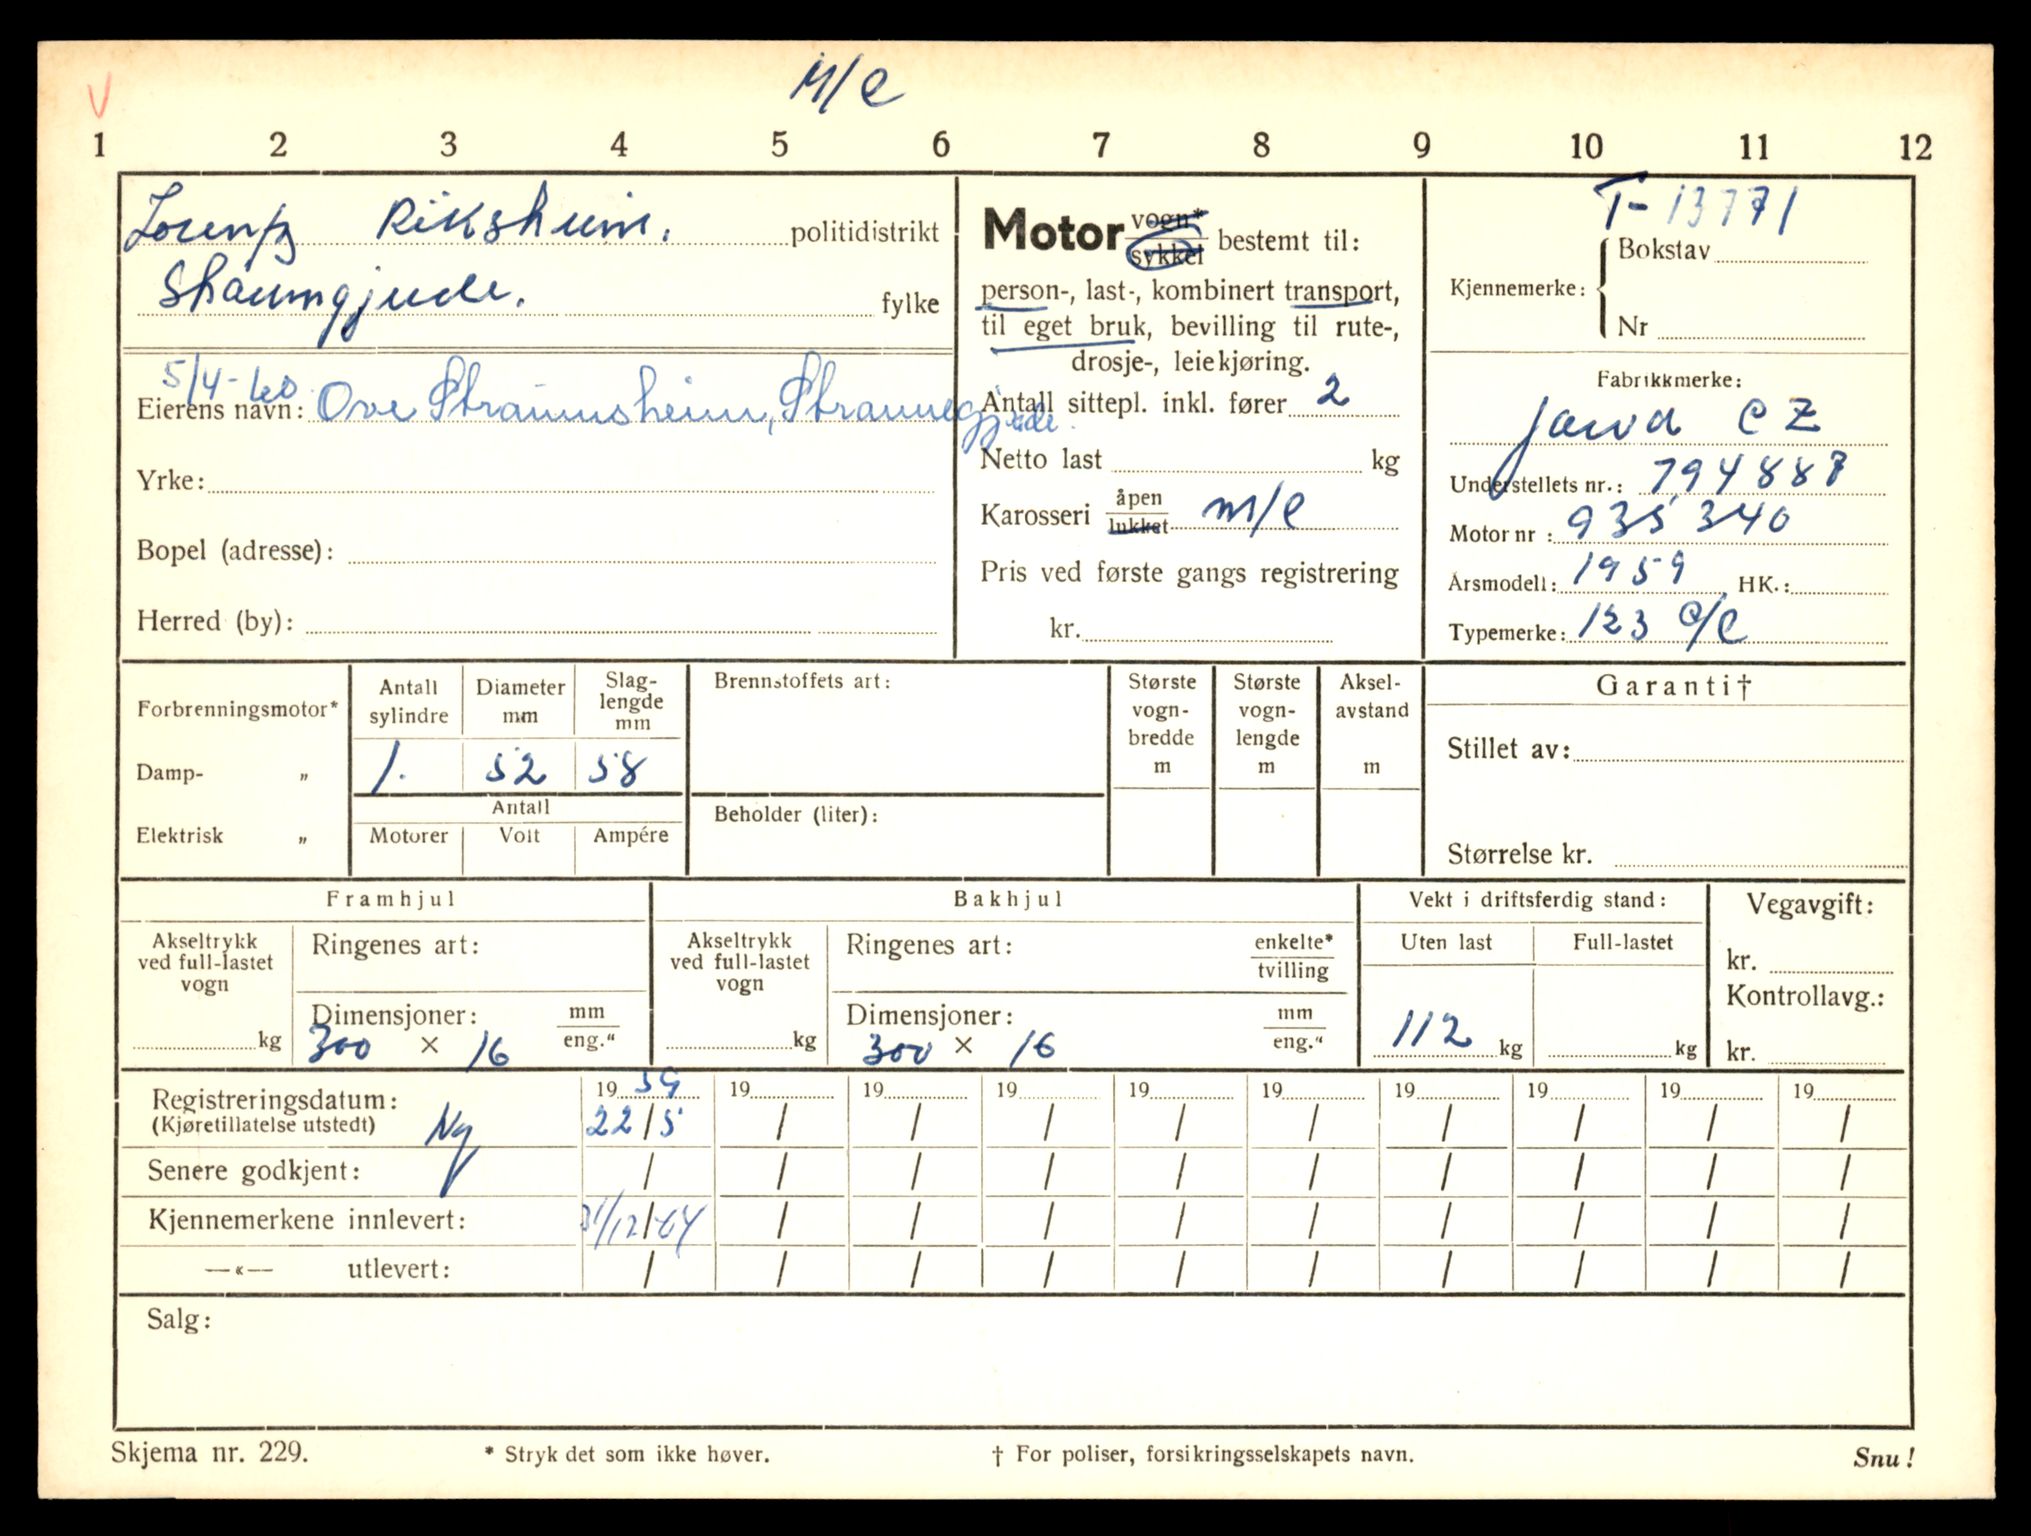 M/C
V
1 2 3 4 5 6 7 8 9 10 11 12
Riksheim. politidistrikt
fylke
5/4-60
Eierens navn: Ove Straumsheim, Straumgjerde.
Yrke:
Bopel (adresse):
Herred (by):
Motor vogn* sykkel bestemt til:
person-, last-, kombinert transport,
til eget bruk, bevilling til rute-,
drosje-, leiekjøring.
Antall sittepl. inkl. fører 2
Netto last kg
Karosseri åpen lukket m/c
Pris ved første gangs registrering
kr.
T-13771
Kjennemerke: Bokstav
Nr
Fabrikkmerke:
Jawa CZ
Understellets nr.: 794887
Motor nr: 935340
Årsmodell: 1959 HK.:
Typemerke: 123 C/C
Forbrenningsmotor*
Damp- "
Elektrisk "
Antall sylindre
Diameter mm
Slag-lengde mm
1. 52 58
Antall
Motorer Volt Ampére
Brennstoffets art:
Beholder (liter):
Største vogn-bredde m
Største vogn-lengde m
Aksel-avstand m
Garanti†
Stillet av:
Størrelse kr.
Framhjul
Akseltrykk ved full-lastet vogn
kg
Ringenes art:
Dimensjoner: mm eng."
300 × 16
Bakhjul
Akseltrykk ved full-lastet vogn
kg
Ringenes art: enkelte* tvilling
Dimensjoner: mm eng."
300 × 16
Vekt i driftsferdig stand:
Uten last Full-lastet
112 kg kg
Vegavgift:
kr.
Kontrollavg.:
kr.
19 59 19 19 19 19 19 19 19 19 19
Registreringsdatum: Ny 22/5 / / / / / / / / /
(Kjøretillatelse utstedt)
Senere godkjent: / / / / / / / / / /
Kjennemerkene innlevert: 31/12/64 / / / / / / / / /
—«— utlevert: / / / / / / / / / /
Salg:
Skjema nr. 229. * Stryk det som ikke høver. † For poliser, forsikringsselskapets navn. Snu!